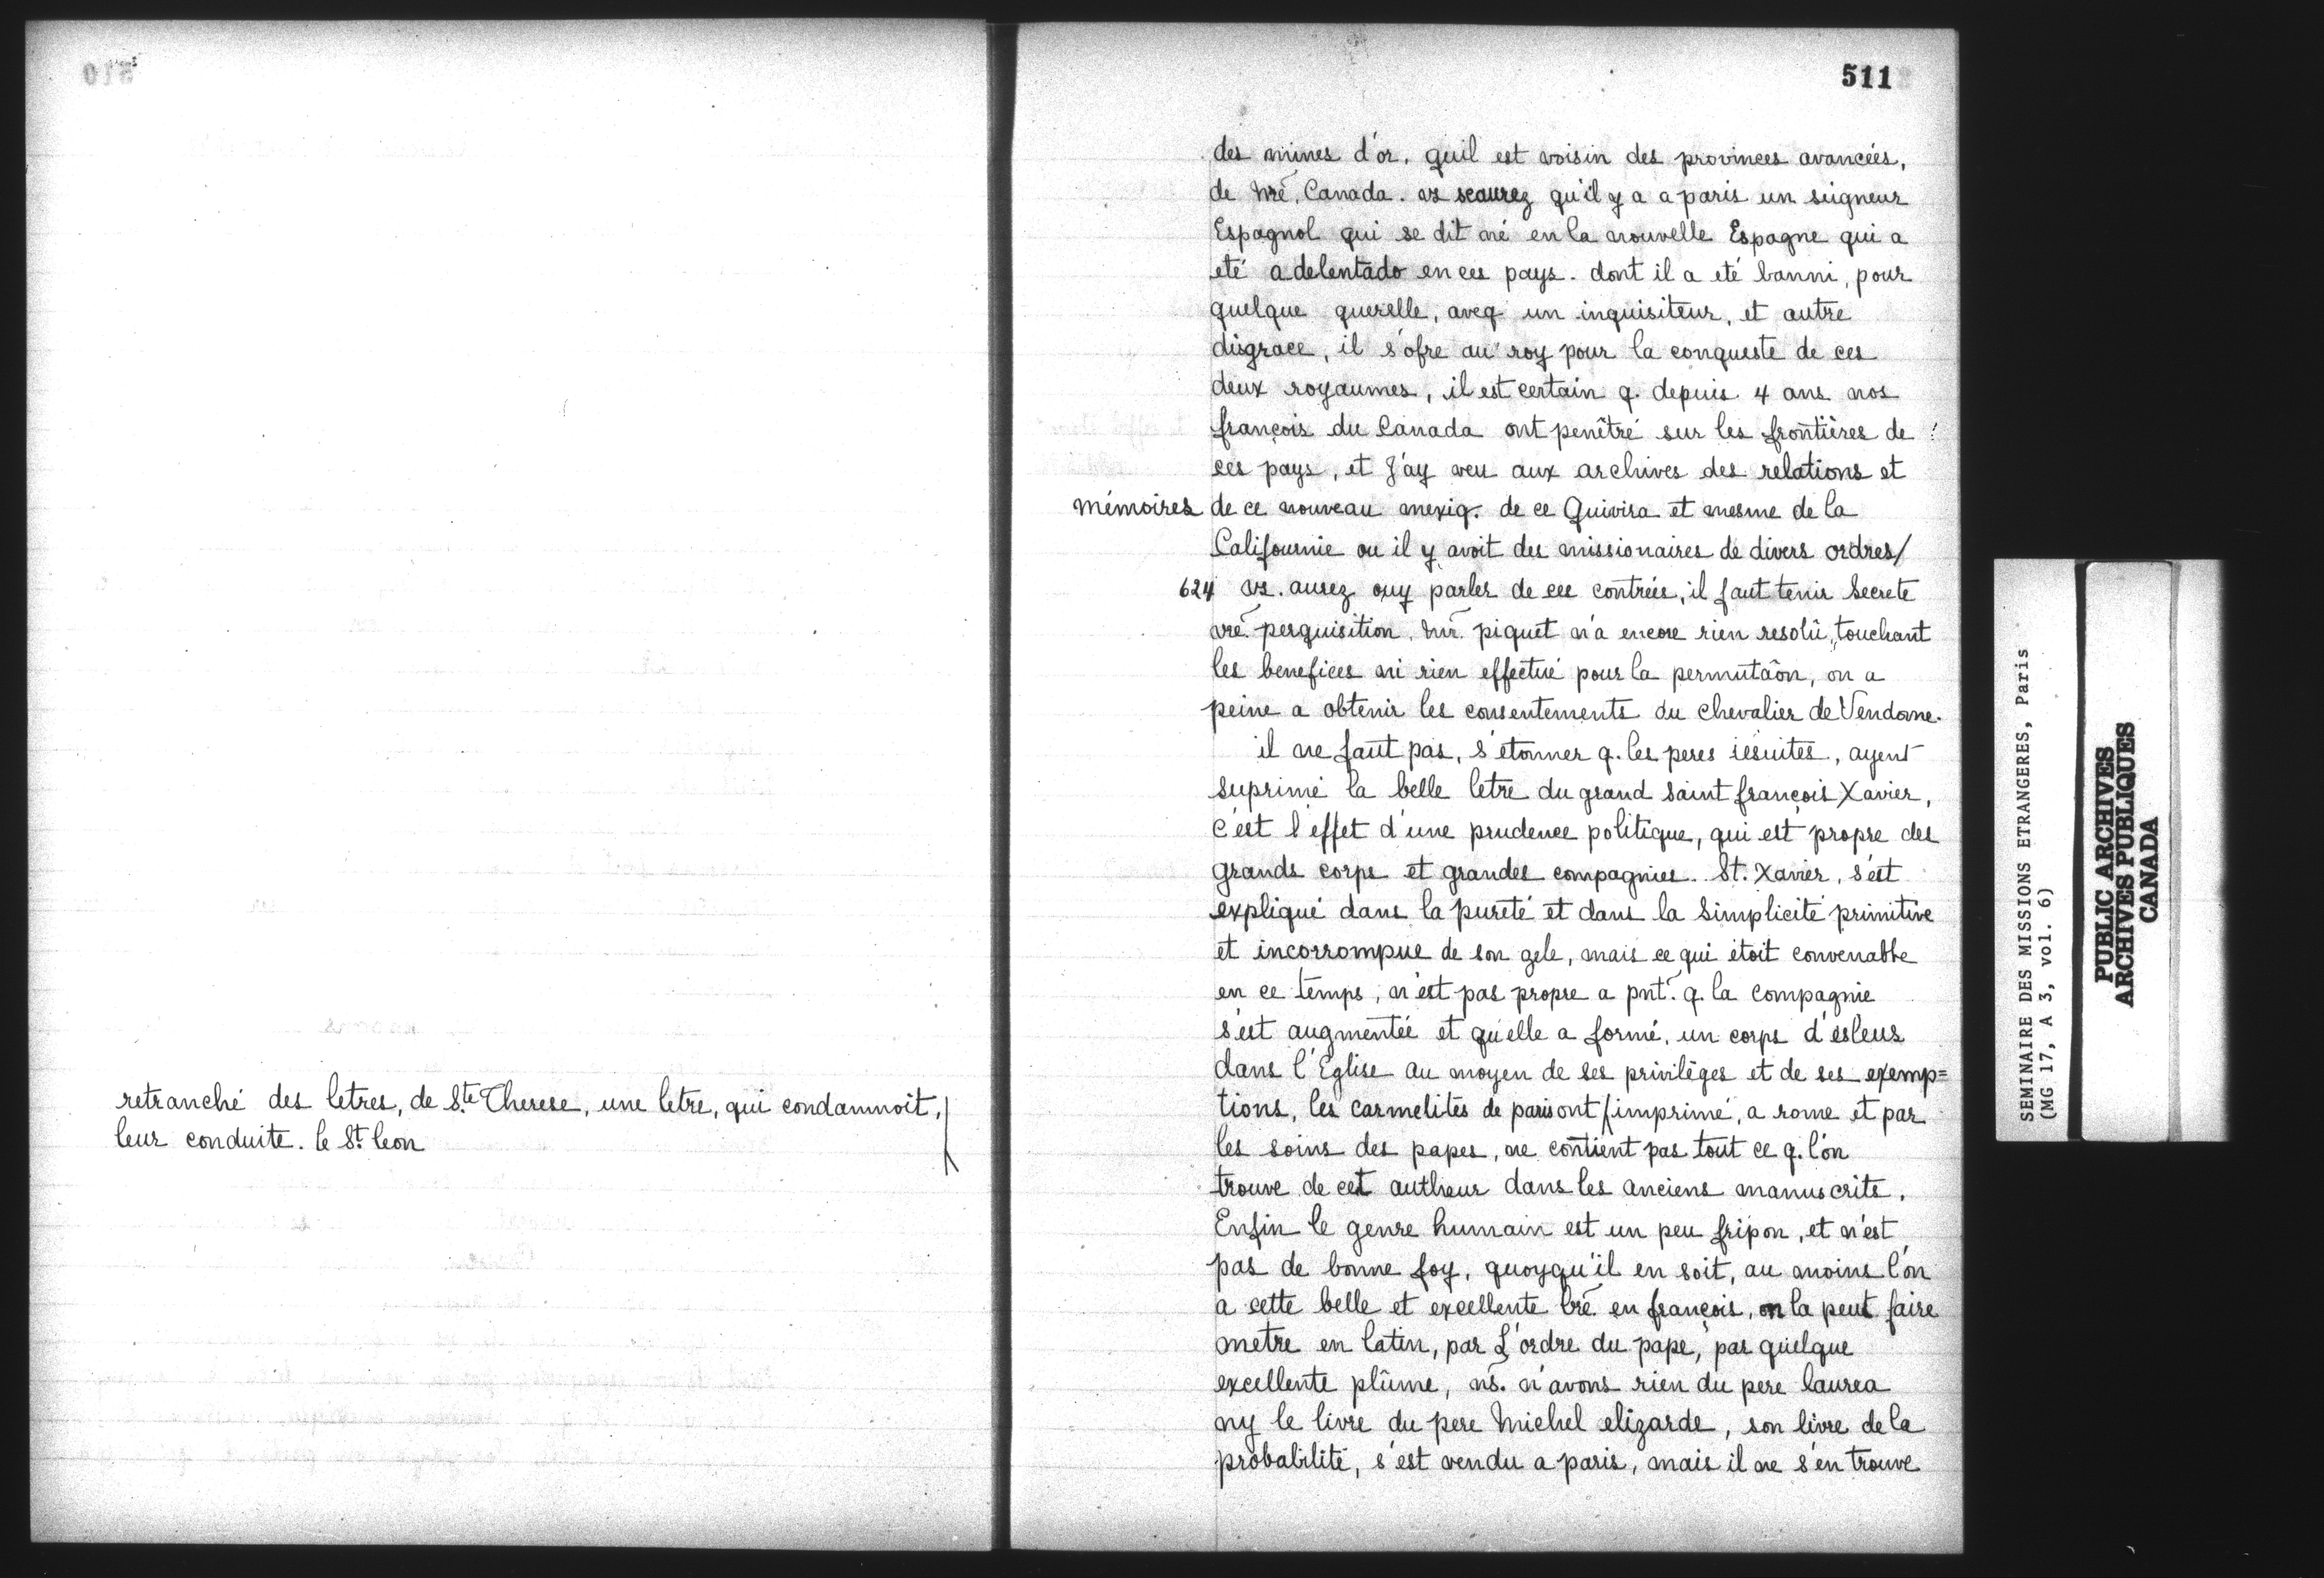 retranché des letres, de S.te Therese, une letre, qui condamnoit,
leur conduite. le St. leon
511
des mines d'or. quil est voisin des provinces avancées,
de nrē. Canada. vs scaurez qu'il y a a paris un seigneur
Espagnol qui se dit né en la nouvelle Espagne qui a
eté adelentado en ces pays. dont il a eté banni, pour
quelque querelle, aveq un inquisiteur, et autre
disgrace, il s'ofre au roy pour la conqueste de ces
deux royaumes, il est certain q. depuis 4 ans nos
françois du Canada ont penêtré sur les frontières de
ces pays, et J'ay veu aux archives des relations et
mémoires de ce nouveau mexiq. de ce Quivira et mesme de la
Califournie ou il y avoit des missionaires de divers ordres/
624 vs. aurez ouy parler de ces contrées, il faut tenir Secrete
vrē. perquisition. Mr. piquet n'a encore rien resolû, touchant
les benefices ni rien effectué pour la permutâon, on a
peine a obtenir les consentements du chevalier de Vendome.
il ne faut pas, s'étonner q. les peres iesuites, ayent
suprimé la belle letre du grand saint françois Xavier,
c'est l'effet d'une prudence politique, qui est propre des
grands corps et grandes compagnies. St. Xavier, s'est
expliqué dans la pureté et dans la Simplicité primitive
et incorrompue de son zele, mais ce qui étoit convenable
en ce temps, n'est pas propre a pnt. q. la compagnie
s'est augmentée et qu'elle a formé, un corps d'esleus
dans l'Eglise au moyen de ses privilèges et de ses exemp=
tions, les carmelites de paris ont /imprimé, a rome et par
les soins des papes, ne contient pas tout ce q. l'on
trouve de cet autheur dans les anciens manuscrits.
Enfin le genre humain est un peu fripon, et n'est
pas de bonne foy, quoyqu'il en soit, au moins l'on
a cette belle et excellente lrē en françois, on la peut faire
metre en latin, par L'ordre du pape, par quelque
excellente plûme, ns. n'avons rien du pere laurea
ny le livre du pere Michel elizarde, son livre de la
probabilité, s'est vendu a paris, mais il ne s'en trouve
SEMINAIRE DES MISSIONS ETRANGERES, Paris
(MG 17, A 3, vol. 6)
PUBLIC ARCHIVES
ARCHIVES PUBLIQUES
CANADA